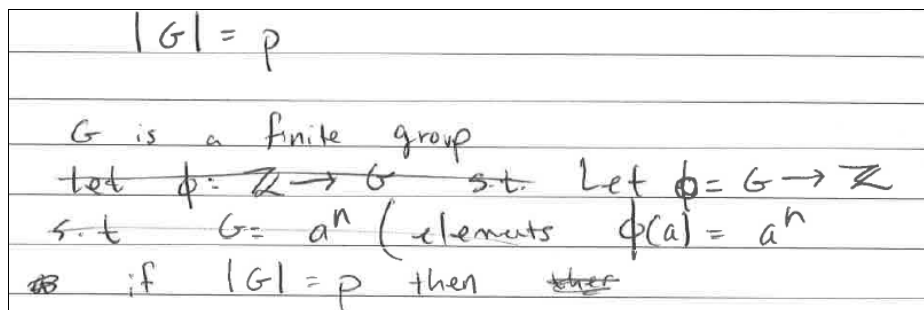 |G| = p
G is a finite group
Let ϕ = ℤ → G s.t. Let ϕ = G → ℤ
s.t G = aⁿ (elements ϕ(a) = aⁿ
if |G| = p then ther